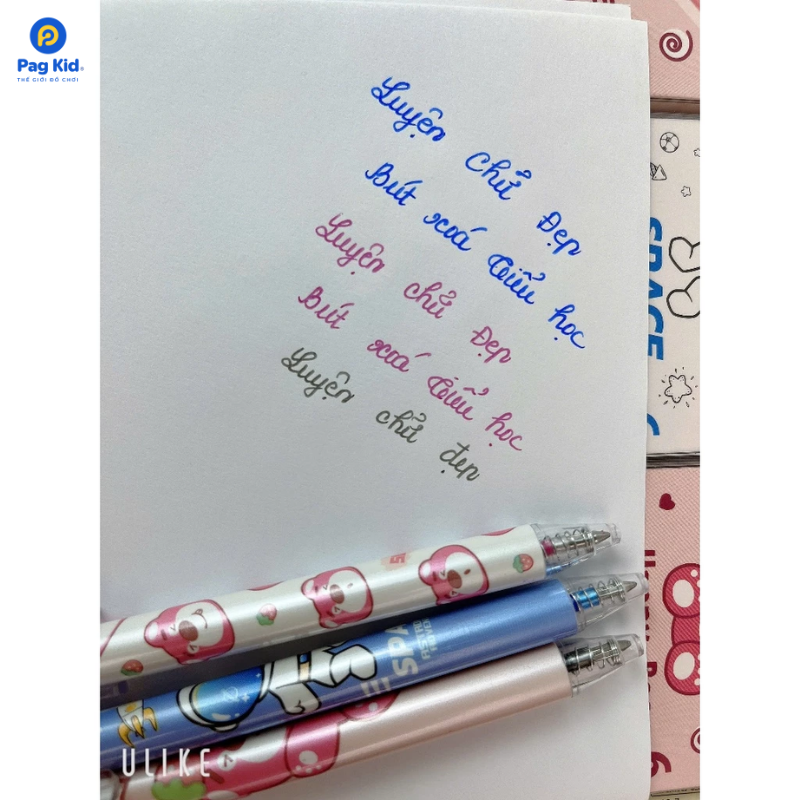 Pag Kid
THẾ GIỚI ĐỒ CHƠI
Luyện chữ Đẹp
Bút xoá Tiểu học
Luyện chữ Đẹp
Bút xoá Tiểu học
Luyện chữ đẹp
SPACE
ULIKE